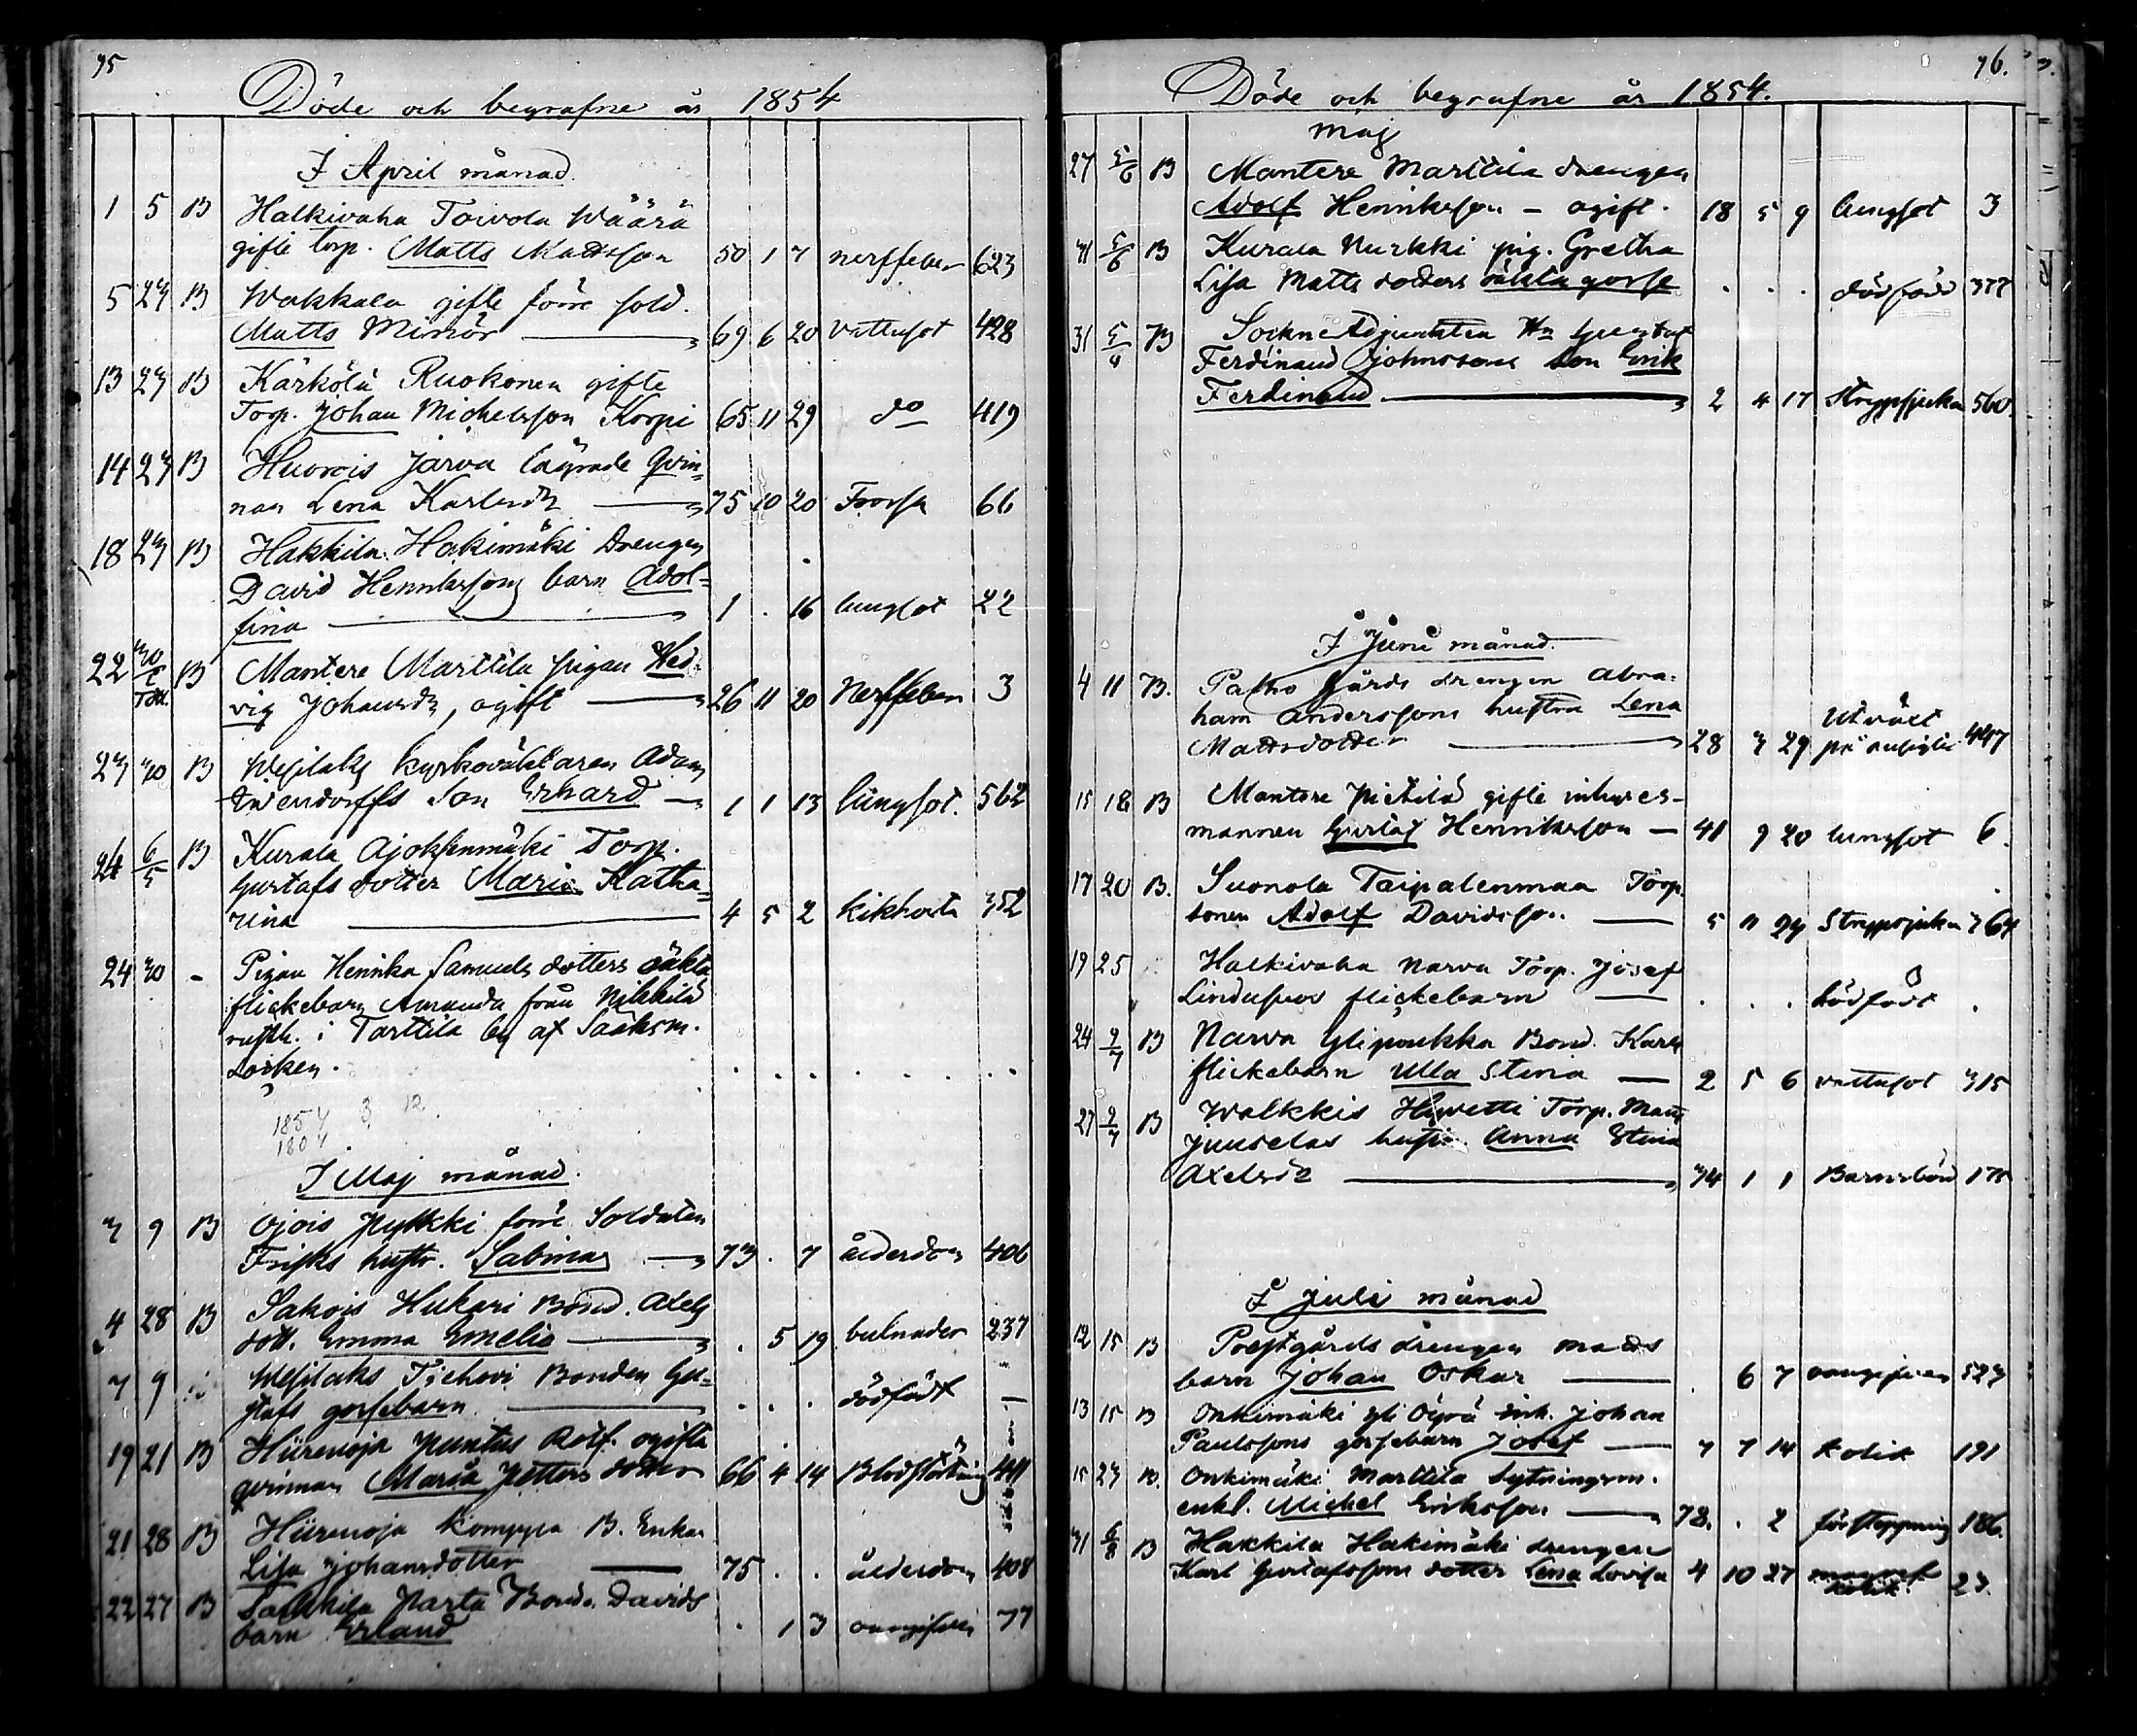 75
Döde och begrafne år 1854
I April månad.
1 5 B Halkivaha Toivola Wäärä
gifte torp. Matts Mattsson 50 1 7 nerffeber 623
5 23 B Wakkala gifte förre sold.
Matts Miniör 69 6 20 vattusot 428
13 23 B Kärkölä Ruokonen gifte
Torp. Johan Michelsson Korpi 65 11 29 do 419
14 23 B Huovois Jarva lägrade qvin=
nan Lena Karlsdr 75 10 20 Frossa 66
18 23 B Hakkila Hakimäki Drengen
David Henrikssons barn Adol=
fina 1 . 16 lungsot 22
22 30 B Mantere Marttila pigan Hed=
vig Johansdr, ogift 26 11 20 Nerffeber 3
23 30 B Wesilaks kyrkoväktaren Adam
Son Erhard 1 1 13 lungsot. 562
24 6/5 B Kurala Ajokseenmäki Torp.
Gustafs dotter Maria Katha=
rina 4 5 2 kikhosta 352
24 30 - Pigan Henrika Samuels dotters oäkta
flickebarn Amanda från Nikkilä
rusth. i Tarttila by af Sääksm.
Socken.
1854 3 12
1804
I Maj månad.
3 9 B Ojois Hykki förre Soldaten
Frisks hustr. Sabina 73 . 7 ålderdom 406
4 28 B Sakois Hukari Bond. Axels
dott. Emma Emelia . 5 19 bulnader 237
7 9 Wesilaks Tiehovi Bonden Gu=
stafs gossebarn . . . dödfödt —
19 21 B Hiirenoja Puntus Rolf. ogifta
qvinnan Maria Petters dotter 66 4 14 Blodstörtning 411
21 28 B Hiirenoja Komppa B. Enkan
Lisa Johansdotter 75 . . ålderdom 408
22 27 B Parta Bond. Davids
barn Erland . 1 3 oangifven 77
76.
Döde och begrafne år 1854.
Maj
27 5/6 B Mantere Marttila drengen
Adolf Henriksson - ogift. 18 5 9 lungsot 3
31 5/6 B Kurala Nurkki pig. Gretha
Lisa Matts dotters oäkta gosse . . . dödfödd 377
31 5/6 B Sockne Adjunkten Hr Gustaf
Ferdinand Johnssons Son Erik
Ferdinand 2 4 17 Strypsjuka 560.
I Juni månad.
4 11 B. Palho Gårds drengen Abra-
ham Anderssons hustru Lena
Mattsdotter 28 3 29 Utväxt
på 447
15 18 B Mantere Pietilä gifte inhyses-
mannen Gustaf Henriksson — 41 9 20 lungsot 6.
17 20 B. Suonola Taipalenmaa Torp.
sonen Adolf Davidsson 5 11 24 Strypsjuka
19 25 Halkivaha Narva Torp. Josef
flickebarn . . . dödfödt .
24 2/7 B Narva Ylipoukka Bond. Karls
flickebarn Ulla Stina — 2 5 6 vattusot 315
27 2/7 B Walkkis Hyvetti Torp. Matts
Juuselas hustr. Anna Stina
Axelsdr 34 1 1 Barnsbörd
I Juli månad
12 15 B Prestgårds drengen Matts
barn Johan Oskar . 6 7 oangifven 523
13 15 B Onkemäki Yli Öyrä inh. Johan
Paulssons gossebarn Josef 7 14 Kolik 191
15 23 B. Onkimäki Marttila Sytningsm.
enkl. Michel Eriksson 78. . 2 förstoppning 186.
31 6/8 B Hakkila Hakimäki drengen
Karl Gustafssons dotter Lena Lovisa 4 10 27 Kolik. 23.